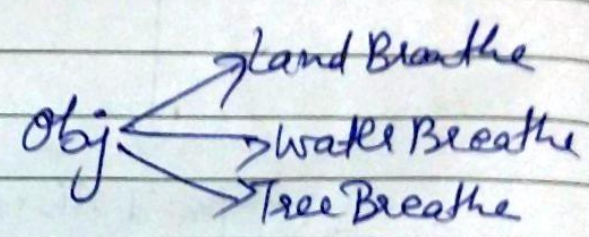 Land Breathe
Obj
Water Breathe
Tree Breathe